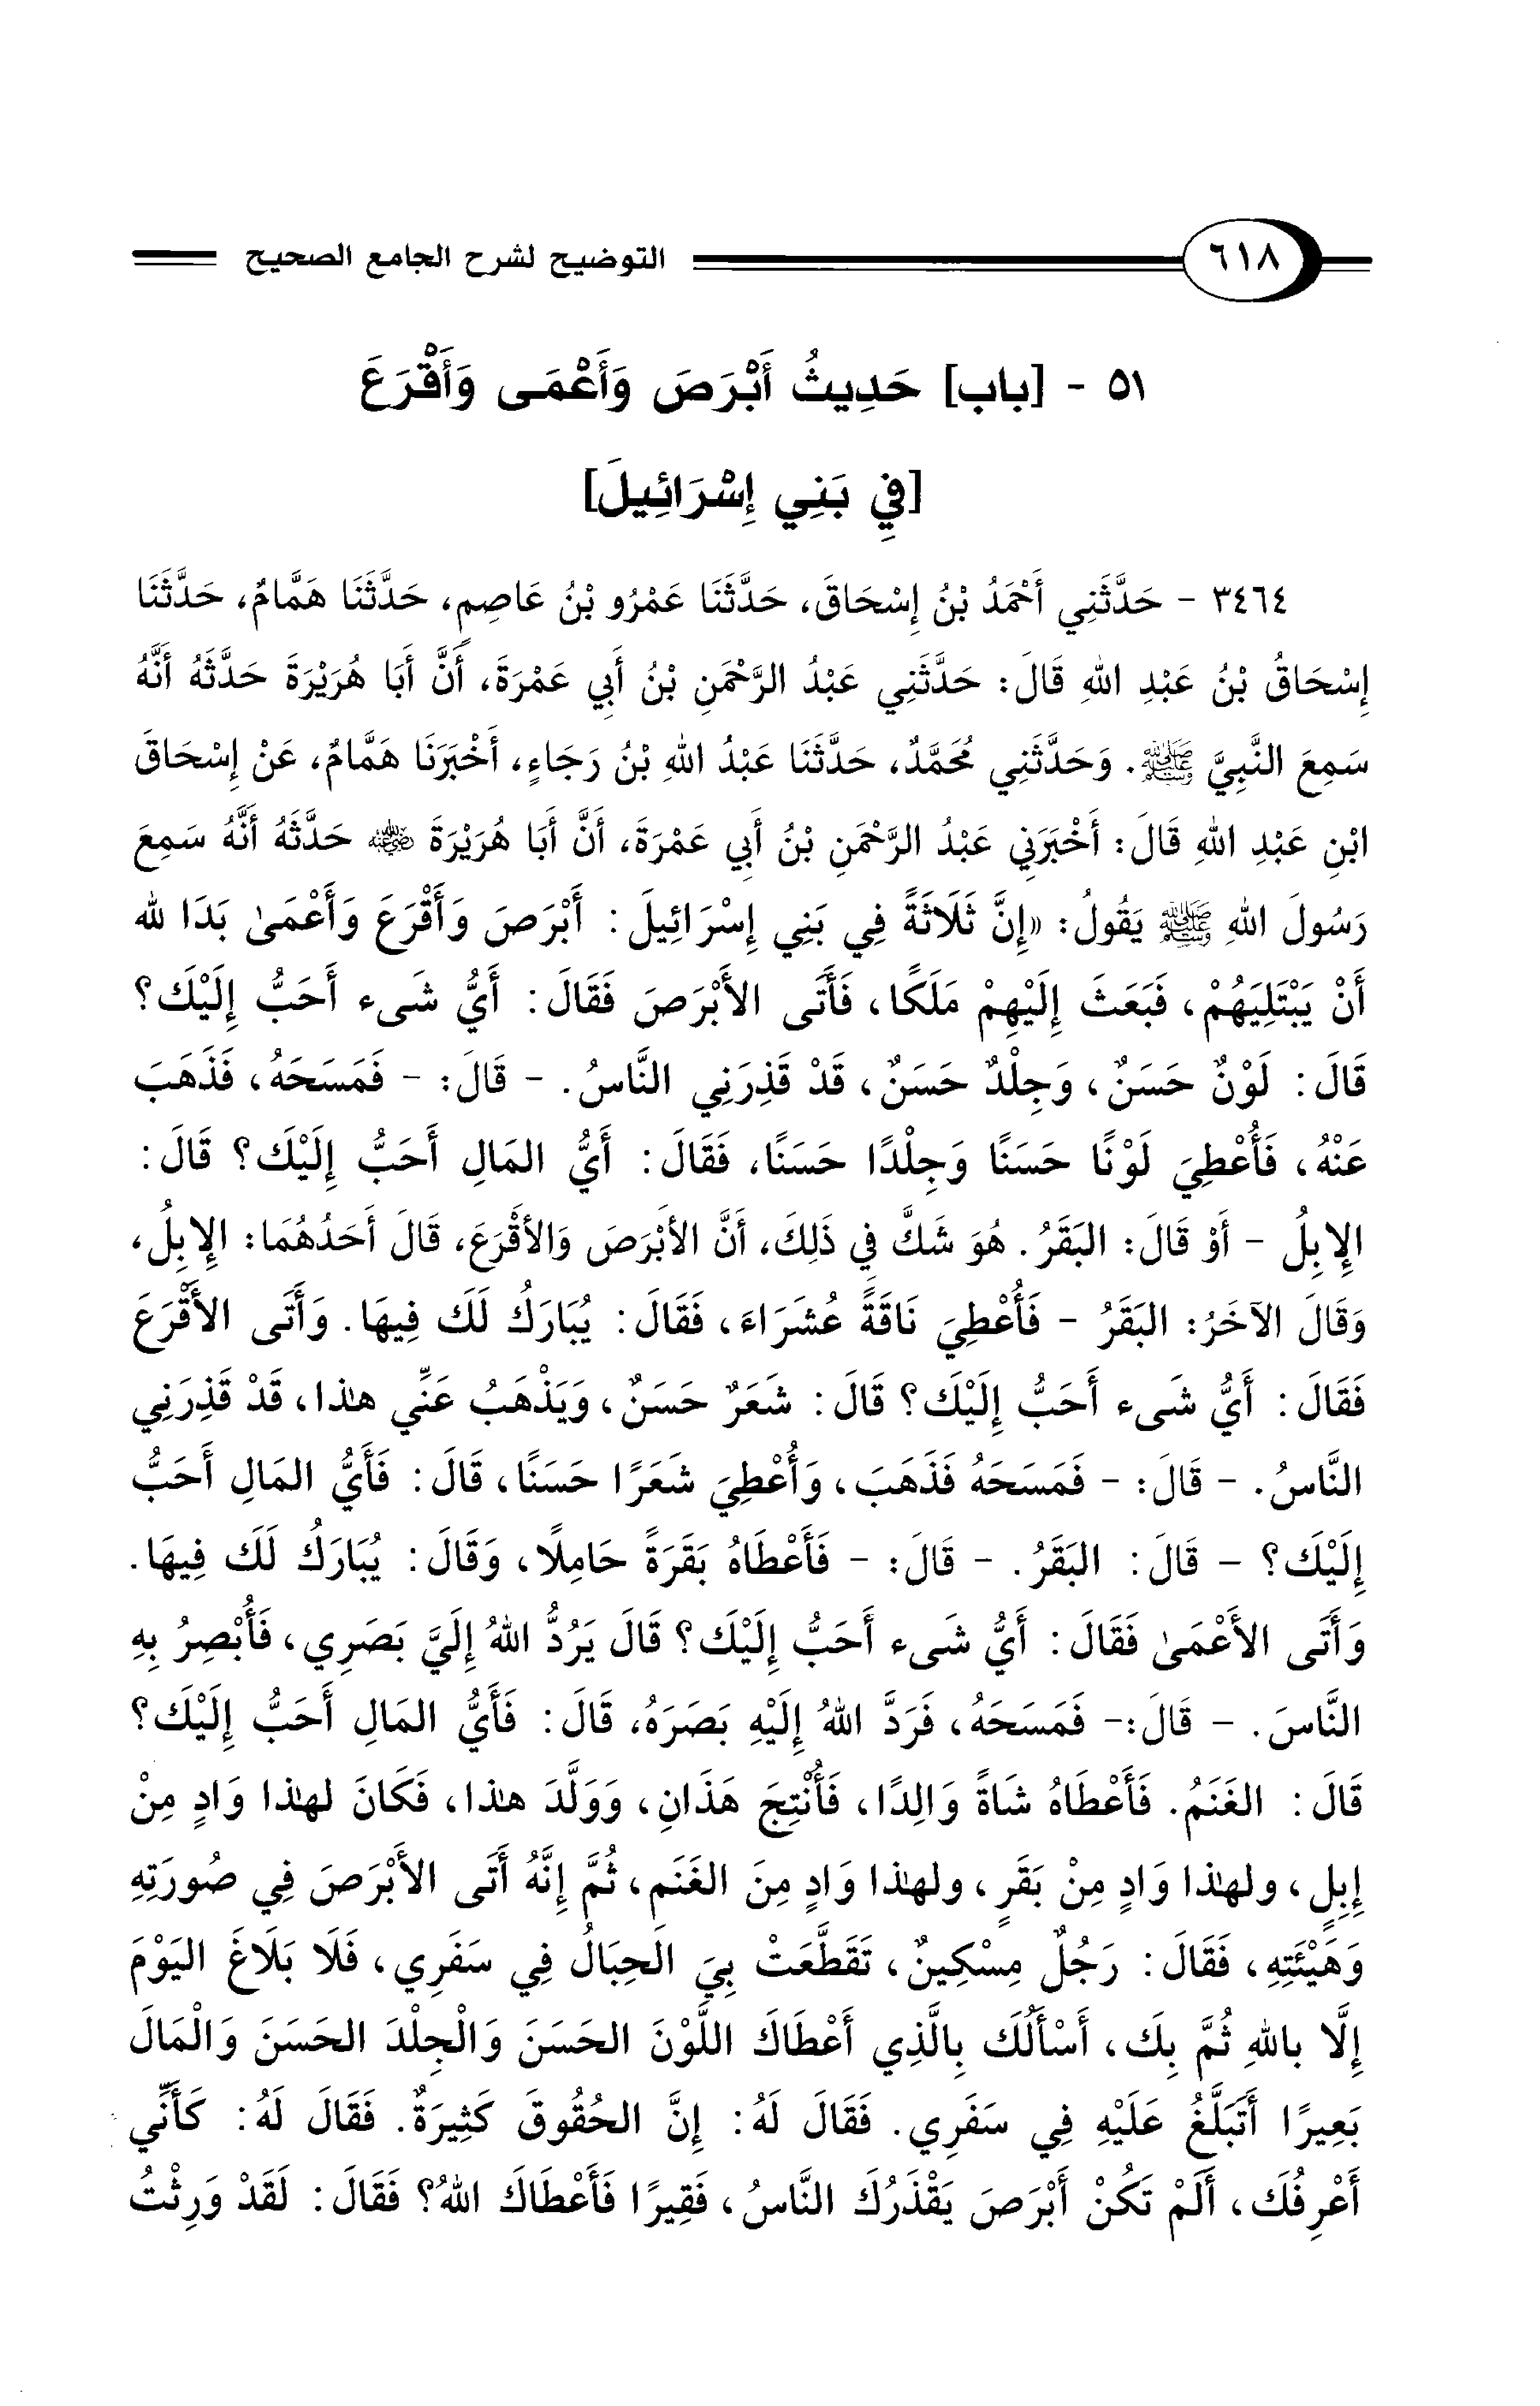 ٦١٨ التوضيح لشرح الجامع الصحيح
٥١ - [باب] حَدِيثُ أَبْرَصَ وَأَعْمَى وَأَقْرَعَ
[فِي بَنِي إِسْرَائِيلَ]
٣٤٦٤ - حَدَّثَنِي أَحْمَدُ بْنُ إِسْحَاقَ، حَدَّثَنَا عَمْرُو بْنُ عَاصِمٍ، حَدَّثَنَا هَمَّامٌ، حَدَّثَنَا
إِسْحَاقُ بْنُ عَبْدِ اللهِ قَالَ: حَدَّثَنِي عَبْدُ الرَّحْمَنِ بْنُ أَبِي عَمْرَةَ، أَنَّ أَبَا هُرَيْرَةَ حَدَّثَهُ أَنَّهُ
سَمِعَ النَّبِيَّ ﷺ. وَحَدَّثَنِي مُحَمَّدٌ، حَدَّثَنَا عَبْدُ اللهِ بْنُ رَجَاءٍ، أَخْبَرَنَا هَمَّامٌ، عَنْ إِسْحَاقَ
ابْنِ عَبْدِ اللهِ قَالَ: أَخْبَرَنِي عَبْدُ الرَّحْمَنِ بْنُ أَبِي عَمْرَةَ، أَنَّ أَبَا هُرَيْرَةَ رضي الله عنه حَدَّثَهُ أَنَّهُ سَمِعَ
رَسُولَ اللهِ ﷺ يَقُولُ: «إِنَّ ثَلَاثَةً فِي بَنِي إِسْرَائِيلَ: أَبْرَصَ وَأَقْرَعَ وَأَعْمَىٰ بَدَا لله
أَنْ يَبْتَلِيَهُمْ، فَبَعَثَ إِلَيْهِمْ مَلَكًا، فَأَتَى الأَبْرَصَ فَقَالَ: أَيُّ شَىء أَحَبُّ إِلَيْكَ؟
قَالَ: لَوْنٌ حَسَنٌ، وَجِلْدٌ حَسَنٌ، قَدْ قَذِرَنِي النَّاسُ. - قَالَ: - فَمَسَحَهُ، فَذَهَبَ
عَنْهُ، فَأُعْطِيَ لَوْنًا حَسَنًا وَجِلْدًا حَسَنًا، فَقَالَ: أَيُّ المَالِ أَحَبُّ إِلَيْكَ؟ قَالَ:
الإِبِلُ - أَوْ قَالَ: البَقَرُ. هُوَ شَكَّ فِي ذَلِكَ، أَنَّ الأَبْرَصَ وَالأَقْرَعَ، قَالَ أَحَدُهُمَا: الإِبِلُ،
وَقَالَ الآخَرُ: البَقَرُ - فَأُعْطِيَ نَاقَةً عُشَرَاءَ، فَقَالَ: يُبَارَكُ لَكَ فِيهَا. وَأَتَى الأَقْرَعَ
فَقَالَ: أَيُّ شَىء أَحَبُّ إِلَيْكَ؟ قَالَ: شَعَرٌ حَسَنٌ، وَيَذْهَبُ عَنِّي هذا، قَدْ قَذِرَنِي
النَّاسُ. - قَالَ: - فَمَسَحَهُ فَذَهَبَ، وَأُعْطِيَ شَعَرًا حَسَنًا، قَالَ: فَأَيُّ المَالِ أَحَبُّ
إِلَيْكَ؟ - قَالَ: البَقَرُ. - قَالَ: - فَأَعْطَاهُ بَقَرَةً حَامِلًا، وَقَالَ: يُبَارَكُ لَكَ فِيهَا.
وَأَتَى الأَعْمَىٰ فَقَالَ: أَيُّ شَىء أَحَبُّ إِلَيْكَ؟ قَالَ يَرُدُّ اللهُ إِلَيَّ بَصَرِي، فَأُبْصِرُ بِهِ
النَّاسَ. - قَالَ:- فَمَسَحَهُ، فَرَدَّ اللهُ إِلَيْهِ بَصَرَهُ، قَالَ: فَأَيُّ المَالِ أَحَبُّ إِلَيْكَ؟
قَالَ: الغَنَمُ. فَأَعْطَاهُ شَاةً وَالِدًا، فَأُنْتِجَ هَذَانِ، وَوَلَّدَ هذا، فَكَانَ لهذا وَادٍ مِنْ
إِبِلٍ، ولهذا وَادٍ مِنْ بَقَرٍ، ولهذا وَادٍ مِنَ الغَنَمِ، ثُمَّ إِنَّهُ أَتَى الأَبْرَصَ فِي صُورَتِهِ
وَهَيْئَتِهِ، فَقَالَ: رَجُلٌ مِسْكِينٌ، تَقَطَّعَتْ بِيَ الحِبَالُ فِي سَفَرِي، فَلَا بَلَاغَ اليَوْمَ
إِلَّا بالله ثُمَّ بِكَ، أَسْأَلُكَ بِالَّذِي أَعْطَاكَ اللَّوْنَ الحَسَنَ وَالْجِلْدَ الحَسَنَ وَالْمَالَ
بَعِيرًا أَتَبَلَّغُ عَلَيْهِ فِي سَفَرِي. فَقَالَ لَهُ: إِنَّ الحُقُوقَ كَثِيرَةٌ. فَقَالَ لَهُ: كَأَنِّي
أَعْرِفُكَ، أَلَمْ تَكُنْ أَبْرَصَ يَقْذَرُكَ النَّاسُ، فَقِيرًا فَأَعْطَاكَ اللهُ؟ فَقَالَ: لَقَدْ وَرِثْتُ